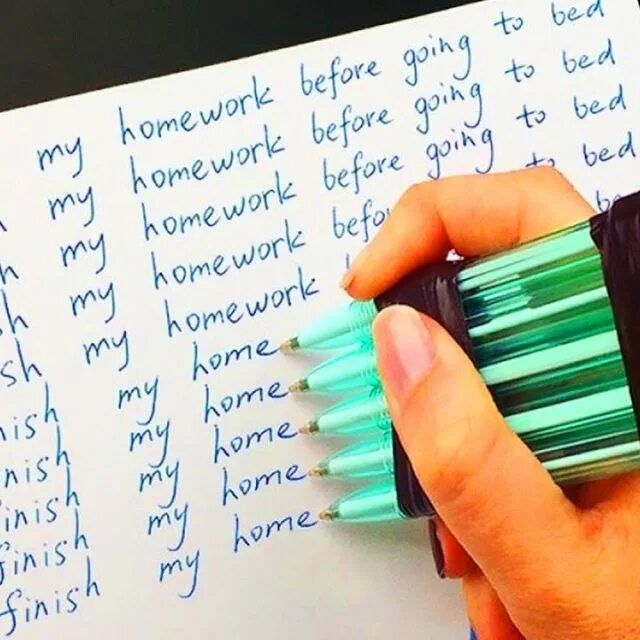 my homework before going to bed
h my homework before going to bed
h my homework before going to bed
sh my homework befo to bed
sh my homework be
nish my home
nish my home
inish my home
finish my home
finish my home